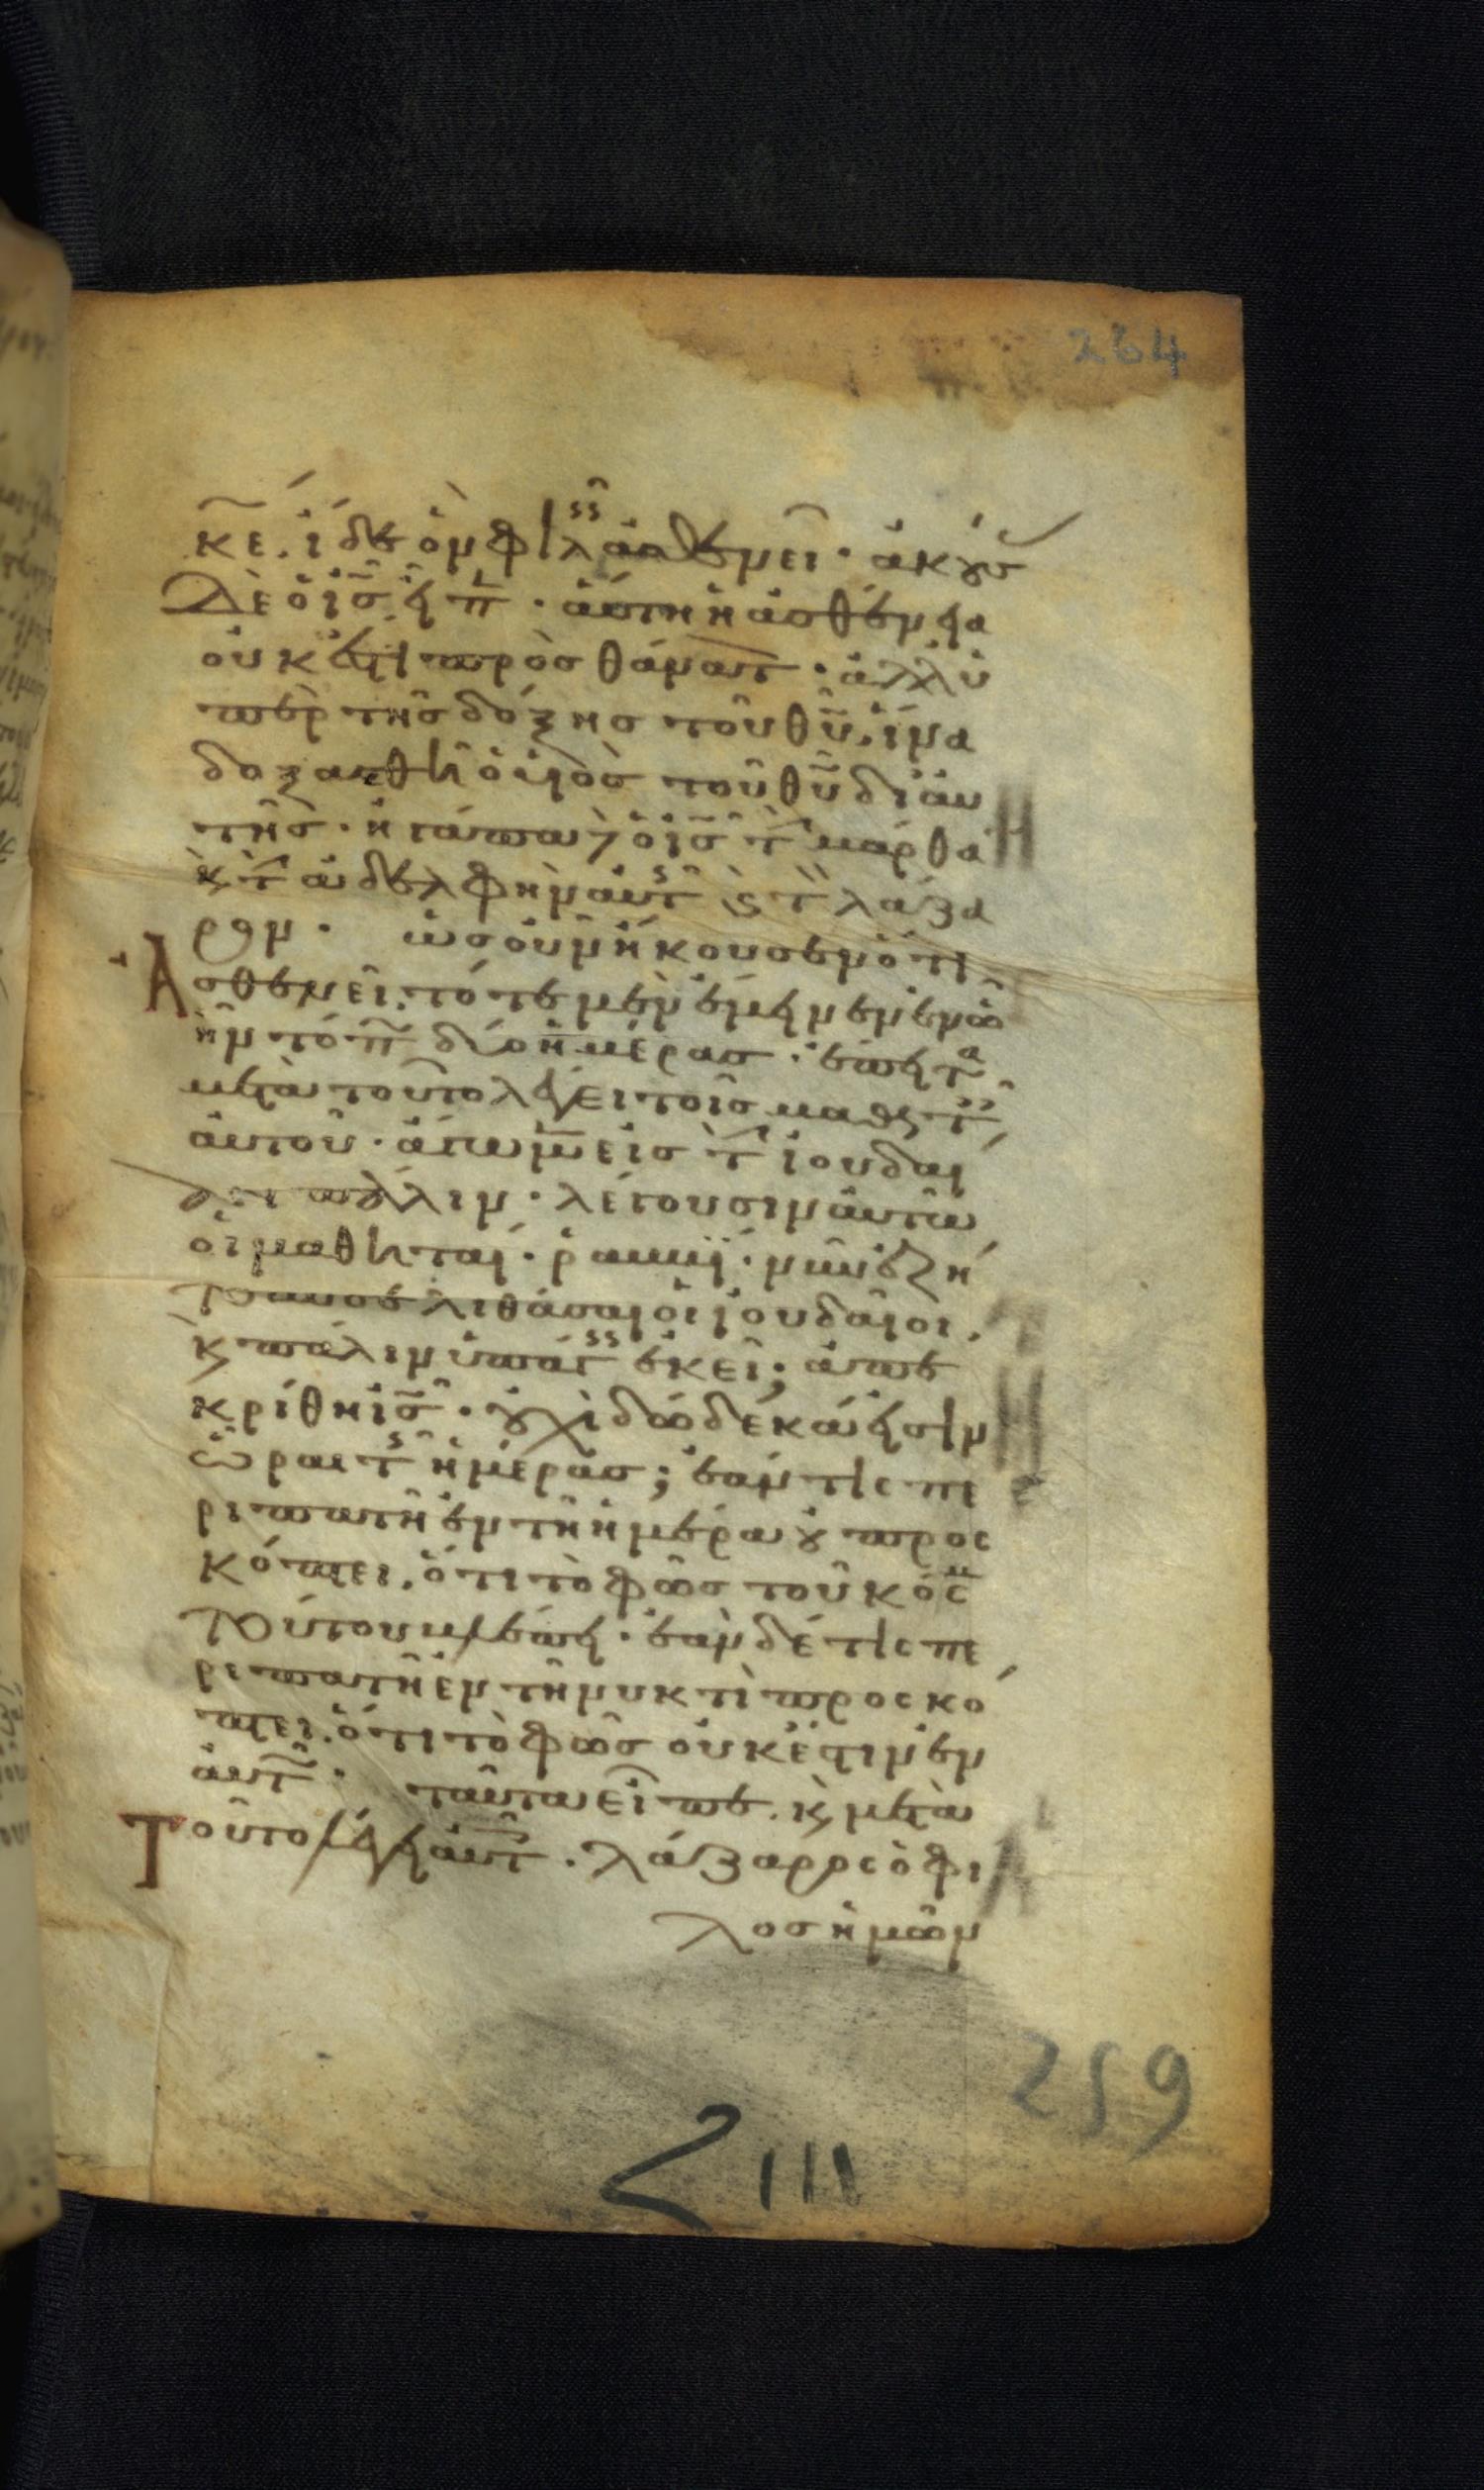 264
κ̅ε̅. ἴδε ὃν φιλεῖς ἀσθενεῖ · ἀκούσ
δὲ ὁ ι̅ς̅ εἶπ · αὕτη ἡ ἀσθένεια
οὐκ ἔστι πρὸς θάνατ · ἀλλ ὑ
πὲρ τῆς δόξης τοῦ θ̅υ̅. ἵνα
δοξασθῆ ὁ υἱὸς τοῦ θ̅υ̅ δι αὐ
τῆς · ἠγάπα δ ὁ ι̅ς̅ τὴν μάρθα
κ τὴν ἀδελφὴν αὐτῆς κ τὸν λάζα
ρον · ὡς οὖν ἤκουσεν ὅτι
ἀσθενεῖ. τότε μὲν ἔμεινεν ἐν ὧ
ἦν τόπ δύο ἡμέρας · ἔπειτα
μετὰ τοῦτο λέγει τοῖς μαθητ
αὐτοῦ · ἄγωμεν εἰς τὴν ἰουδαί
αν πάλιν · λέγουσιν αὐτῶ
οἱ μαθηταί · ῥαββί · νῦν ἐζή
τουν σε λιθάσαι οἱ ἰουδαῖοι.
κ πάλιν ὑπάγεις ἐκεῖ; ἀπε
κρίθη ι̅ς̅ · οὐχὶ δώδεκά εἰσιν
ὧραι τῆς ἡμέρας; ἐάν τις πε
ριπατῆ ἐν τῆ ἡμέρα οὐ προσ
κόπτει. ὅτι τὸ φῶς τοῦ κόσμ
τούτου βλέπει · ἐὰν δέ τις πε
ριπατῆ ἐν τῆ νυκτὶ προσκό
πτει. ὅτι τὸ φῶς οὐκ ἔστιν ἐν
αὐτῶ · ταῦτα εἶπε. κ μετὰ
Τοῦτο λέγει αὐτοῖς · λάζαρος ὁ φί
λος ἡμῶν
259